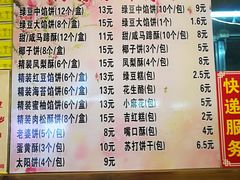 绿豆中馅饼(12个/盒) 13元
绿豆大馅饼(8个/盒) 13元
甜/咸马蹄酥(12个/盒) 11元
椰子饼(8个/盒) 13元
精装凤梨酥(6个/盒) 13元
精装红豆馅饼(6个/盒) 13元
精装海苔馅饼(6个/盒) 15元
精装蜜柚馅饼(6个/盒) 15元
精装肉松酥饼(6个/盒) 15元
老婆饼(5个/包) 8元
蛋黄酥(3个/包) 10元
太阳饼(4个/包) 9元
绿豆中馅饼(10个/包) 9元
绿豆大馅饼 1.6元
甜/咸马蹄酥(10个/包) 5元
椰子饼(5个/包)
凤梨酥(4个/包) 6元
绿豆糕(/包) 2.5元
花生酪(/包) 6元
小麻花(/包) 5元
吉红糕(/包) 2元
嘴口酥(/包) 4元
苏打饼干(/包) 6.5元
快递服务